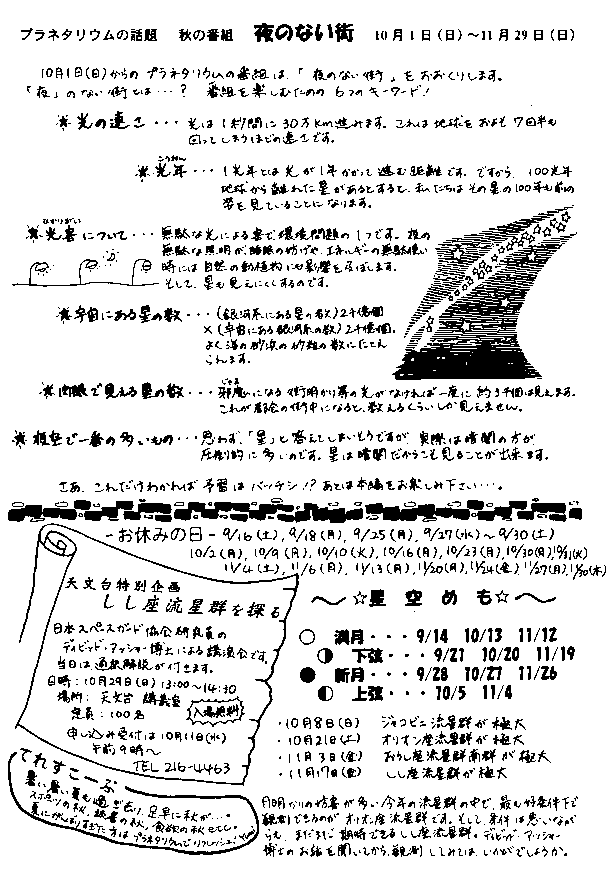 プラネタリウムの話題　秋の番組　夜のない街　10月1日(日)～11月29日(日)
10月1日(日)からのプラネタリウムの番組は、「夜のない街」をおおくりします。
「夜」のない街とは…？　番組を楽しむための6つのキーワード！
＊光の速さ・・・光は1秒間に30万km進みます。これは地球をおよそ7回半も
回ってしまうほどの速さです。
こうねん
＊光年・・・1光年とは光が1年かかって進む距離です。ですから、100光年
地球から離れた星があるとすると、私たちはその星の100年も前の
姿を見ていることになります。
ひかりがい
＊光害について・・・無駄な光による害で環境問題の1つです。夜の
無駄な照明が睡眠の妨げや、エネルギーの無駄使い
時には自然の動植物にも影響を及ぼします。
そして、星も見えにくくするのです。
＊宇宙にある星の数・・・(銀河系にある星の数)2千億個
×(宇宙にある銀河系の数)2千億個。
よく海の砂浜の砂粒の数にたとえ
られます。
じゃま
＊肉眼で見える星の数・・・邪魔になる街明かり等の光がなければ一度に約3千個は見えます。
これが都会の街中になると、数えるくらいしか見えません。
＊夜空で一番の多いもの・・・思わず、「星」と答えてしまいそうですが、実際は暗闇の方が
圧倒的に多いのです。星は暗闇だからこそ見ることが出来ます。
さあ、これだけわかれば予習はバッチシ！？あとは本編をお楽しみ下さい・・・。
-お休みの日- 9/16(土), 9/18(月), 9/25(月), 9/27(水)～9/30(土)
10/2(月), 10/9(月), 10/10(火), 10/16(月), 10/23(月), 10/30(月), 10/31(火)
11/4(土), 11/6(月), 11/13(月), 11/20(月), 11/24(金) 11/27(月) 11/30(木)
天文台特別企画
しし座流星群を探る
日本スペースガード協会研究員の
デイビッド・アッシャー博士による講演会です。
当日は通訳解説が付きます。
日時：10月29日(日)13:00～14:30
場所：天文台　講義室
定員：100名
入場無料
申し込み受付は10月11日(水)
午前9時～
TEL 216-4463
～☆星空めも☆～
満月・・・9/14　10/13　11/12
下弦・・・9/21　10/20　11/19
新月・・・9/28　10/27　11/26
上弦・・・10/5　11/4
・10月8日(日)　ジャコビニ流星群が極大
・10月21日(土)　オリオン座流星群が極大
・11月3日(金)　おうし座流星群南群が極大
・11月17日(金)　しし座流星群が極大
月明かりの妨害が多い今年の流星群の中で、最も好条件下で
観測できるのがオリオン座流星群です。そして、条件は悪いなが
らも、まだまだ期待できるしし座流星群。デイビッド・アッシャー
博士のお話を聞いてから、観測してみては、いかがでしょうか。
てれすこーぷ
暑い暑い夏も過ぎ去り、足早に秋が…。
スポーツの秋、読書の秋、食欲の秋 etc…
夏にがんばりすぎた方はプラネタリウムでリフレッシュ！